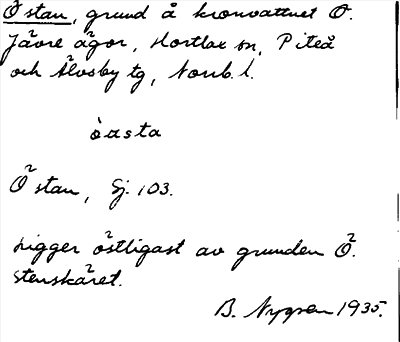 Östan, grund å kronvattnet Ö.
Jävre ägor, Hortlax sn, Piteå
och Älvsby tg, Norrb. l.
òasta
Östan, Sj. 103.
Ligger östligast av grunden Ö.
Stenskäret.
B. Nygren 1935.